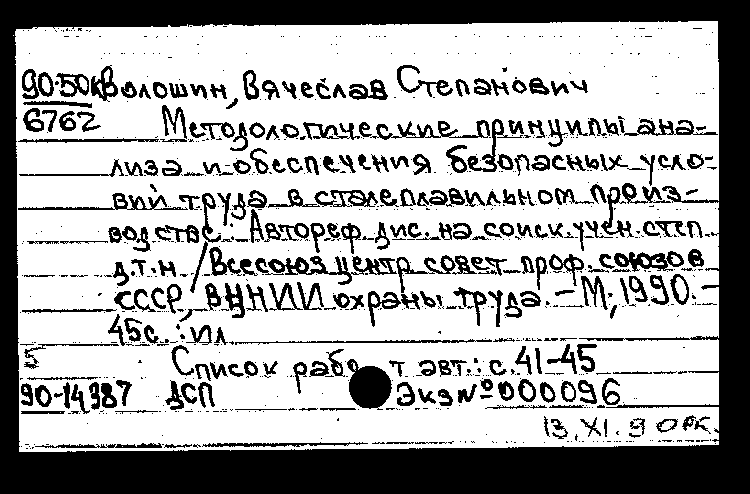 90·50к Волошин, Вячеслав Степанович
6762 Методологические принципы ана-
лиза и обеспечения безопасных усло-
вий труда в сталеплавильном произ-
водстве: Автореф. дис. на соиск. учен. степ.
д.т.н. / Всесоюз центр совет проф. союзов
СССР, ВЦНИИ охраны труда. – М., 1990. –
45с. : ил
5 Список рабо т авт.: с. 41-45
90-14987 ДСП Экз № 000096
13.XI.9